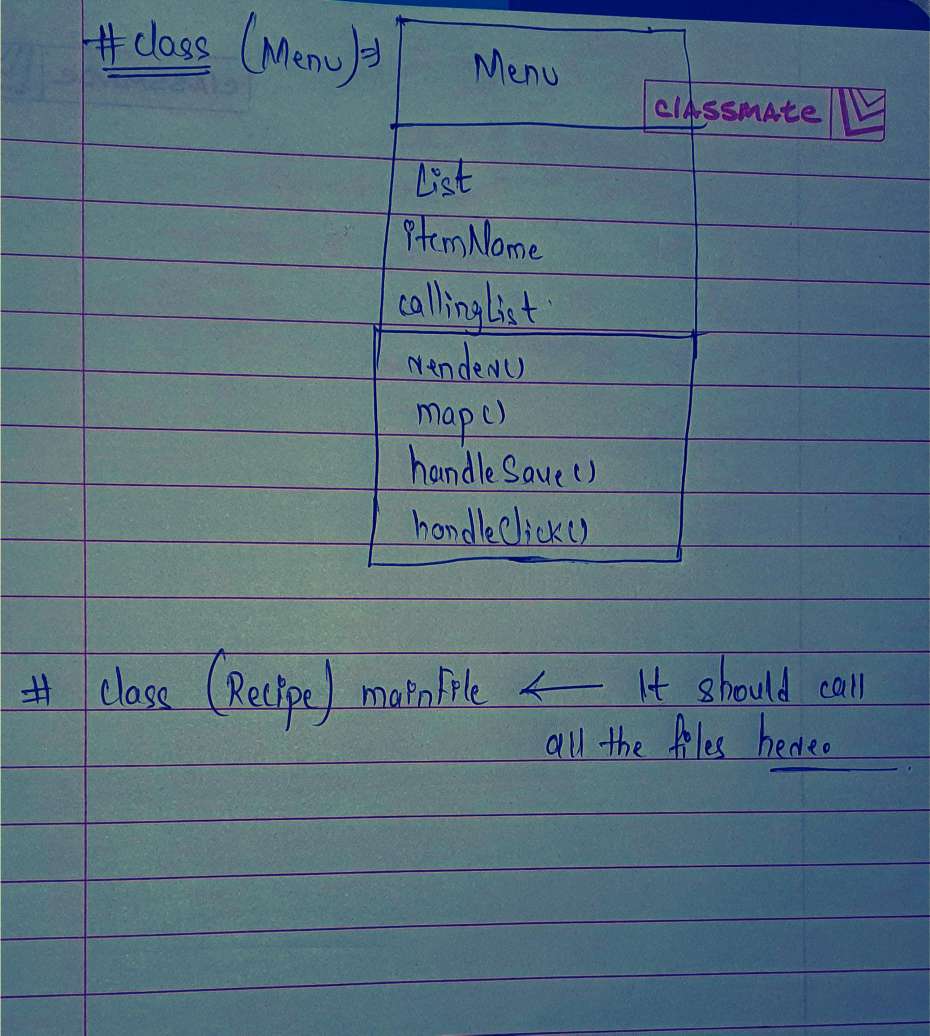 # class (Menu)⇒
Menu
classmate
List
itemName
callingList
render()
map()
handleSave()
handleClick()
# class (Recipe) mainFile ← It should call
all the files here.